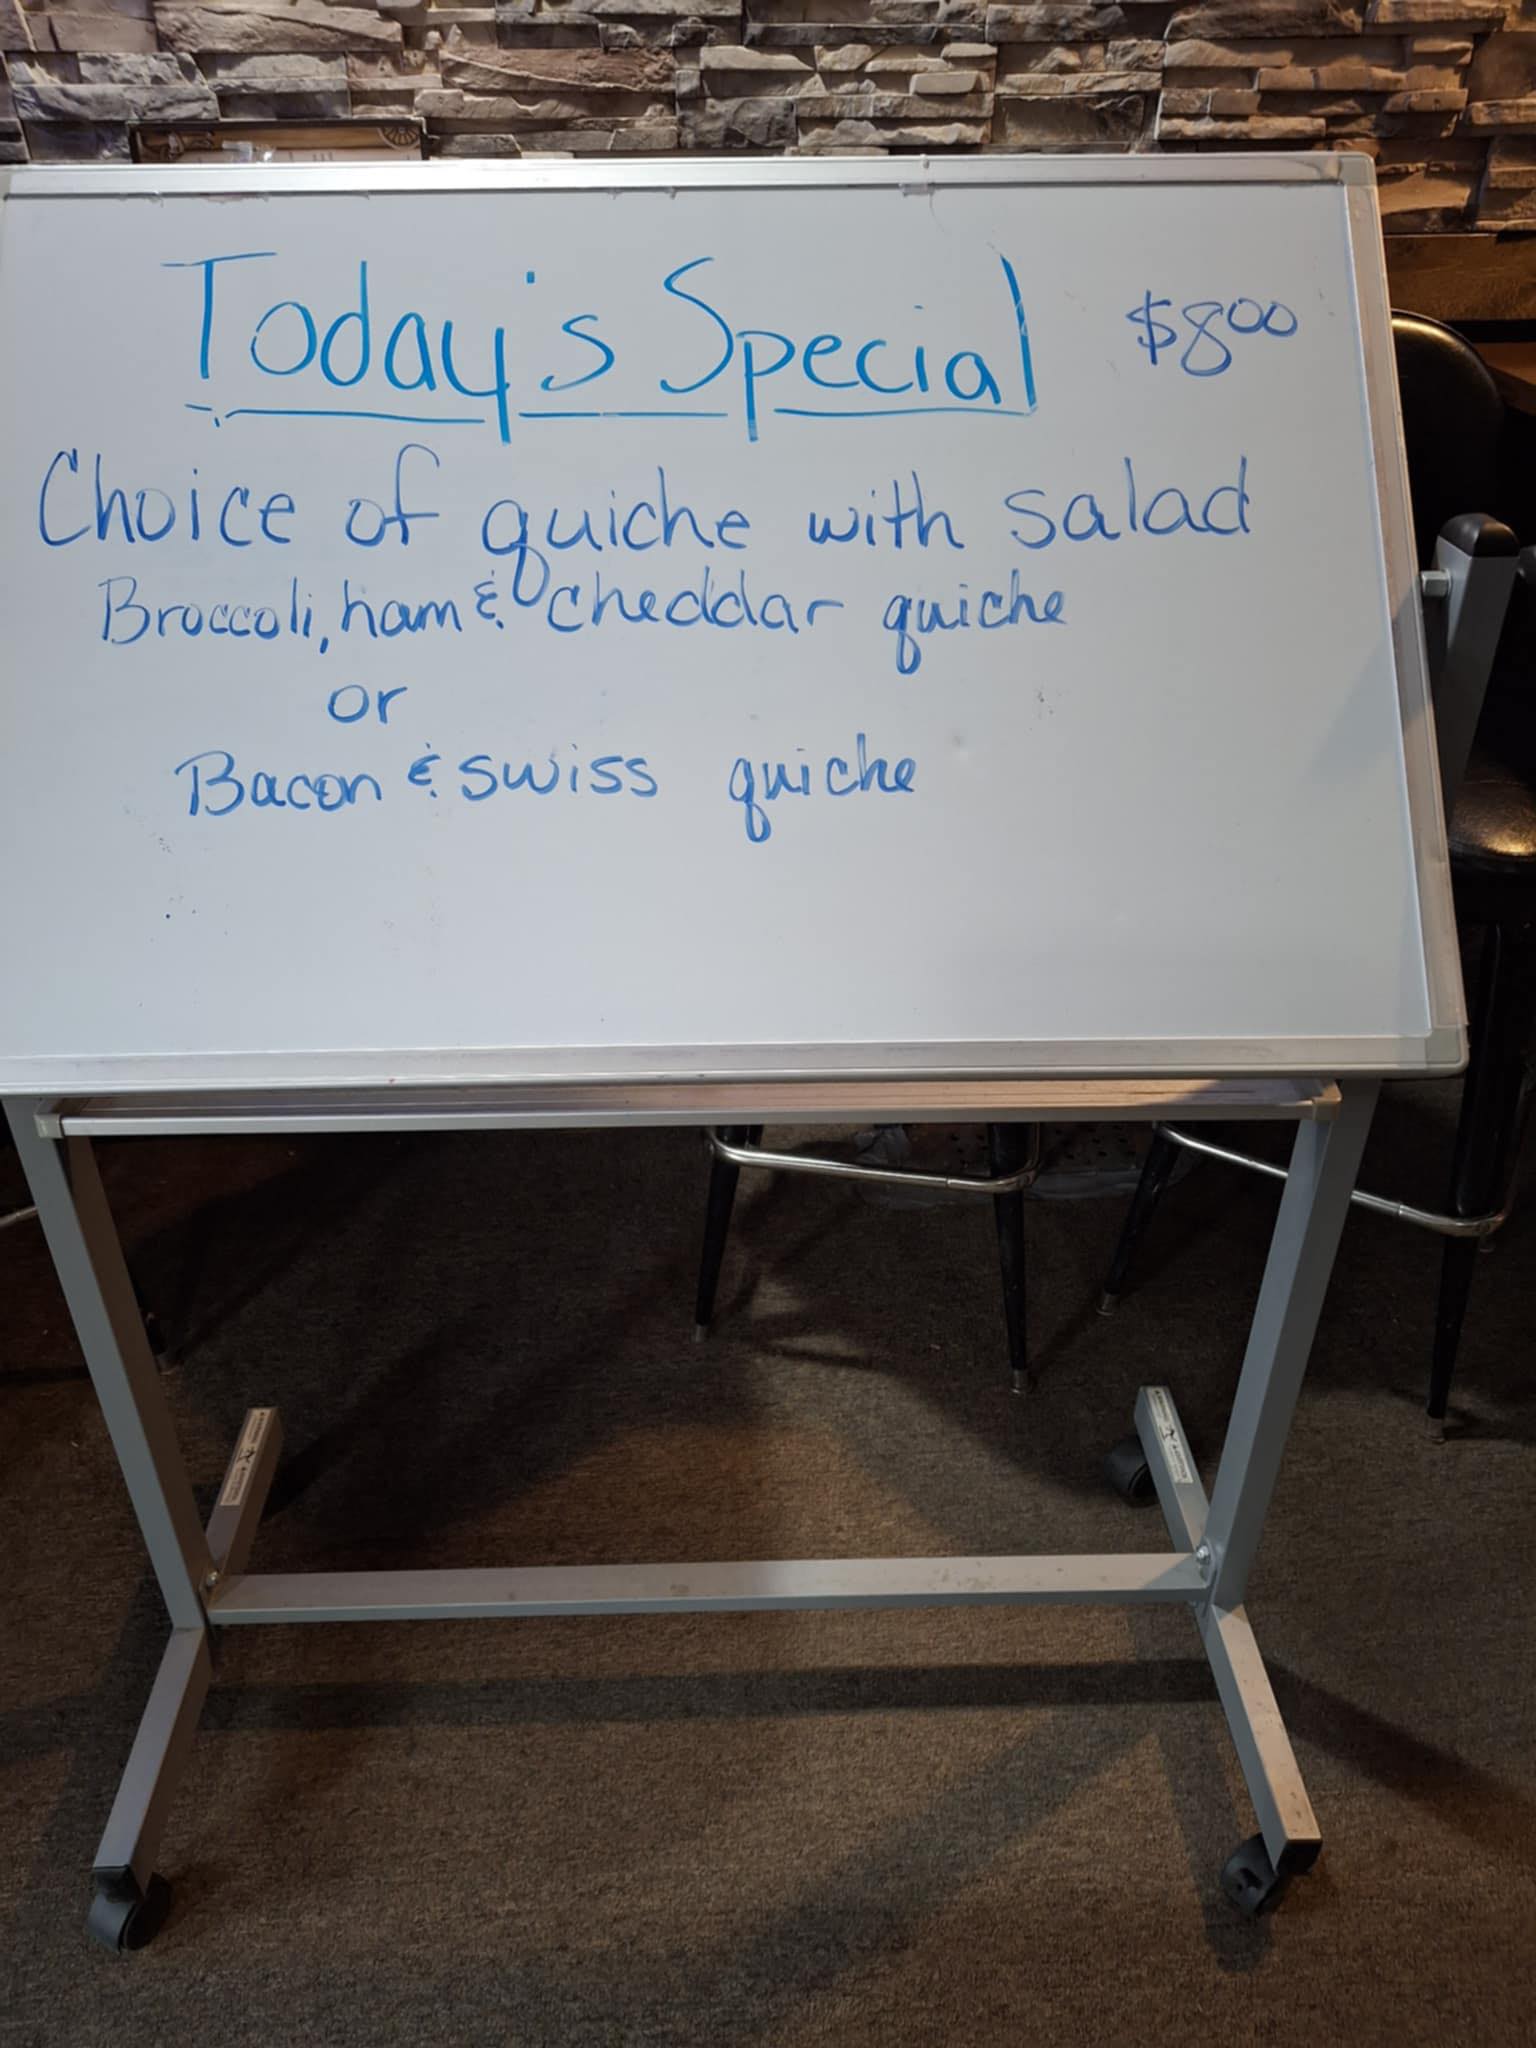 Today's Special $8.00
Choice of quiche with salad
Broccoli, ham & cheddar quiche
or
Bacon & swiss quiche